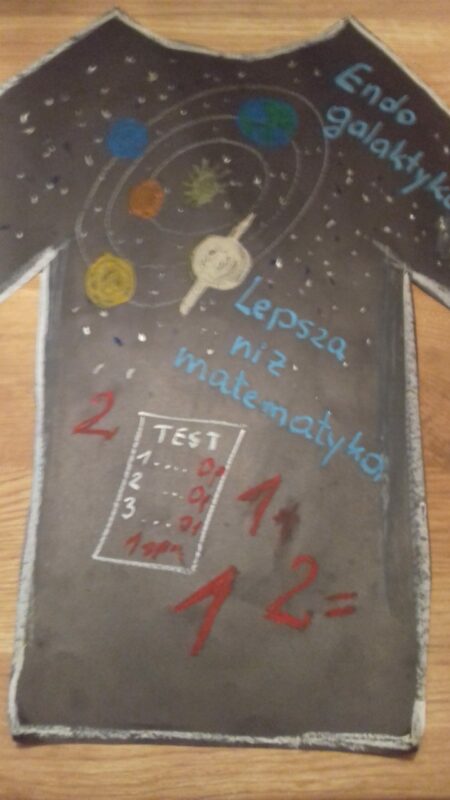 Endo
galaktyka
Lepsza
niż
matematyka
2
TEST
1.... 0p
2 ... 0p
3 ... 0p
1
1+
1
2=